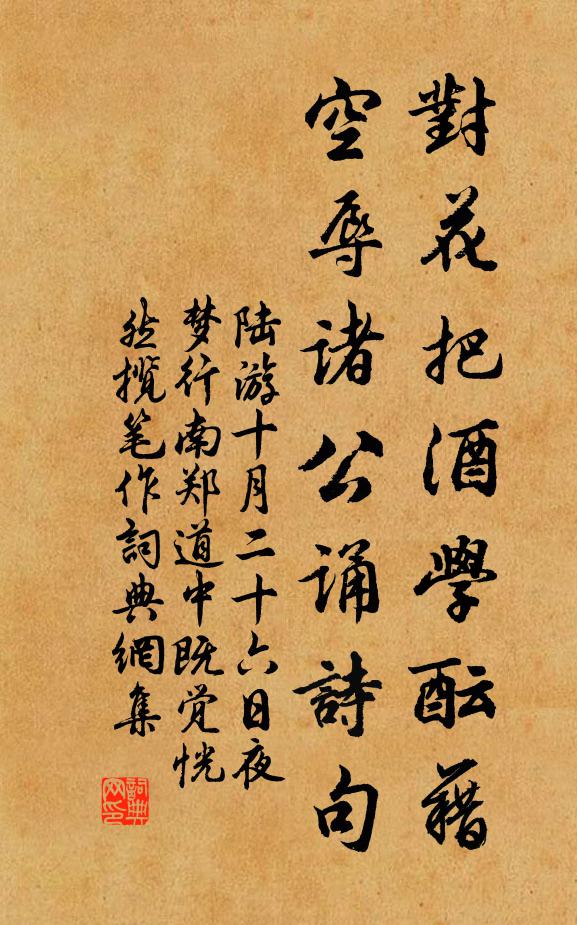 對花把酒學酝藉
空辱諸公誦詩句
陆游十月二十六日夜
梦行南郑道中既觉恍
然揽笔作詞典網集
詞典網印